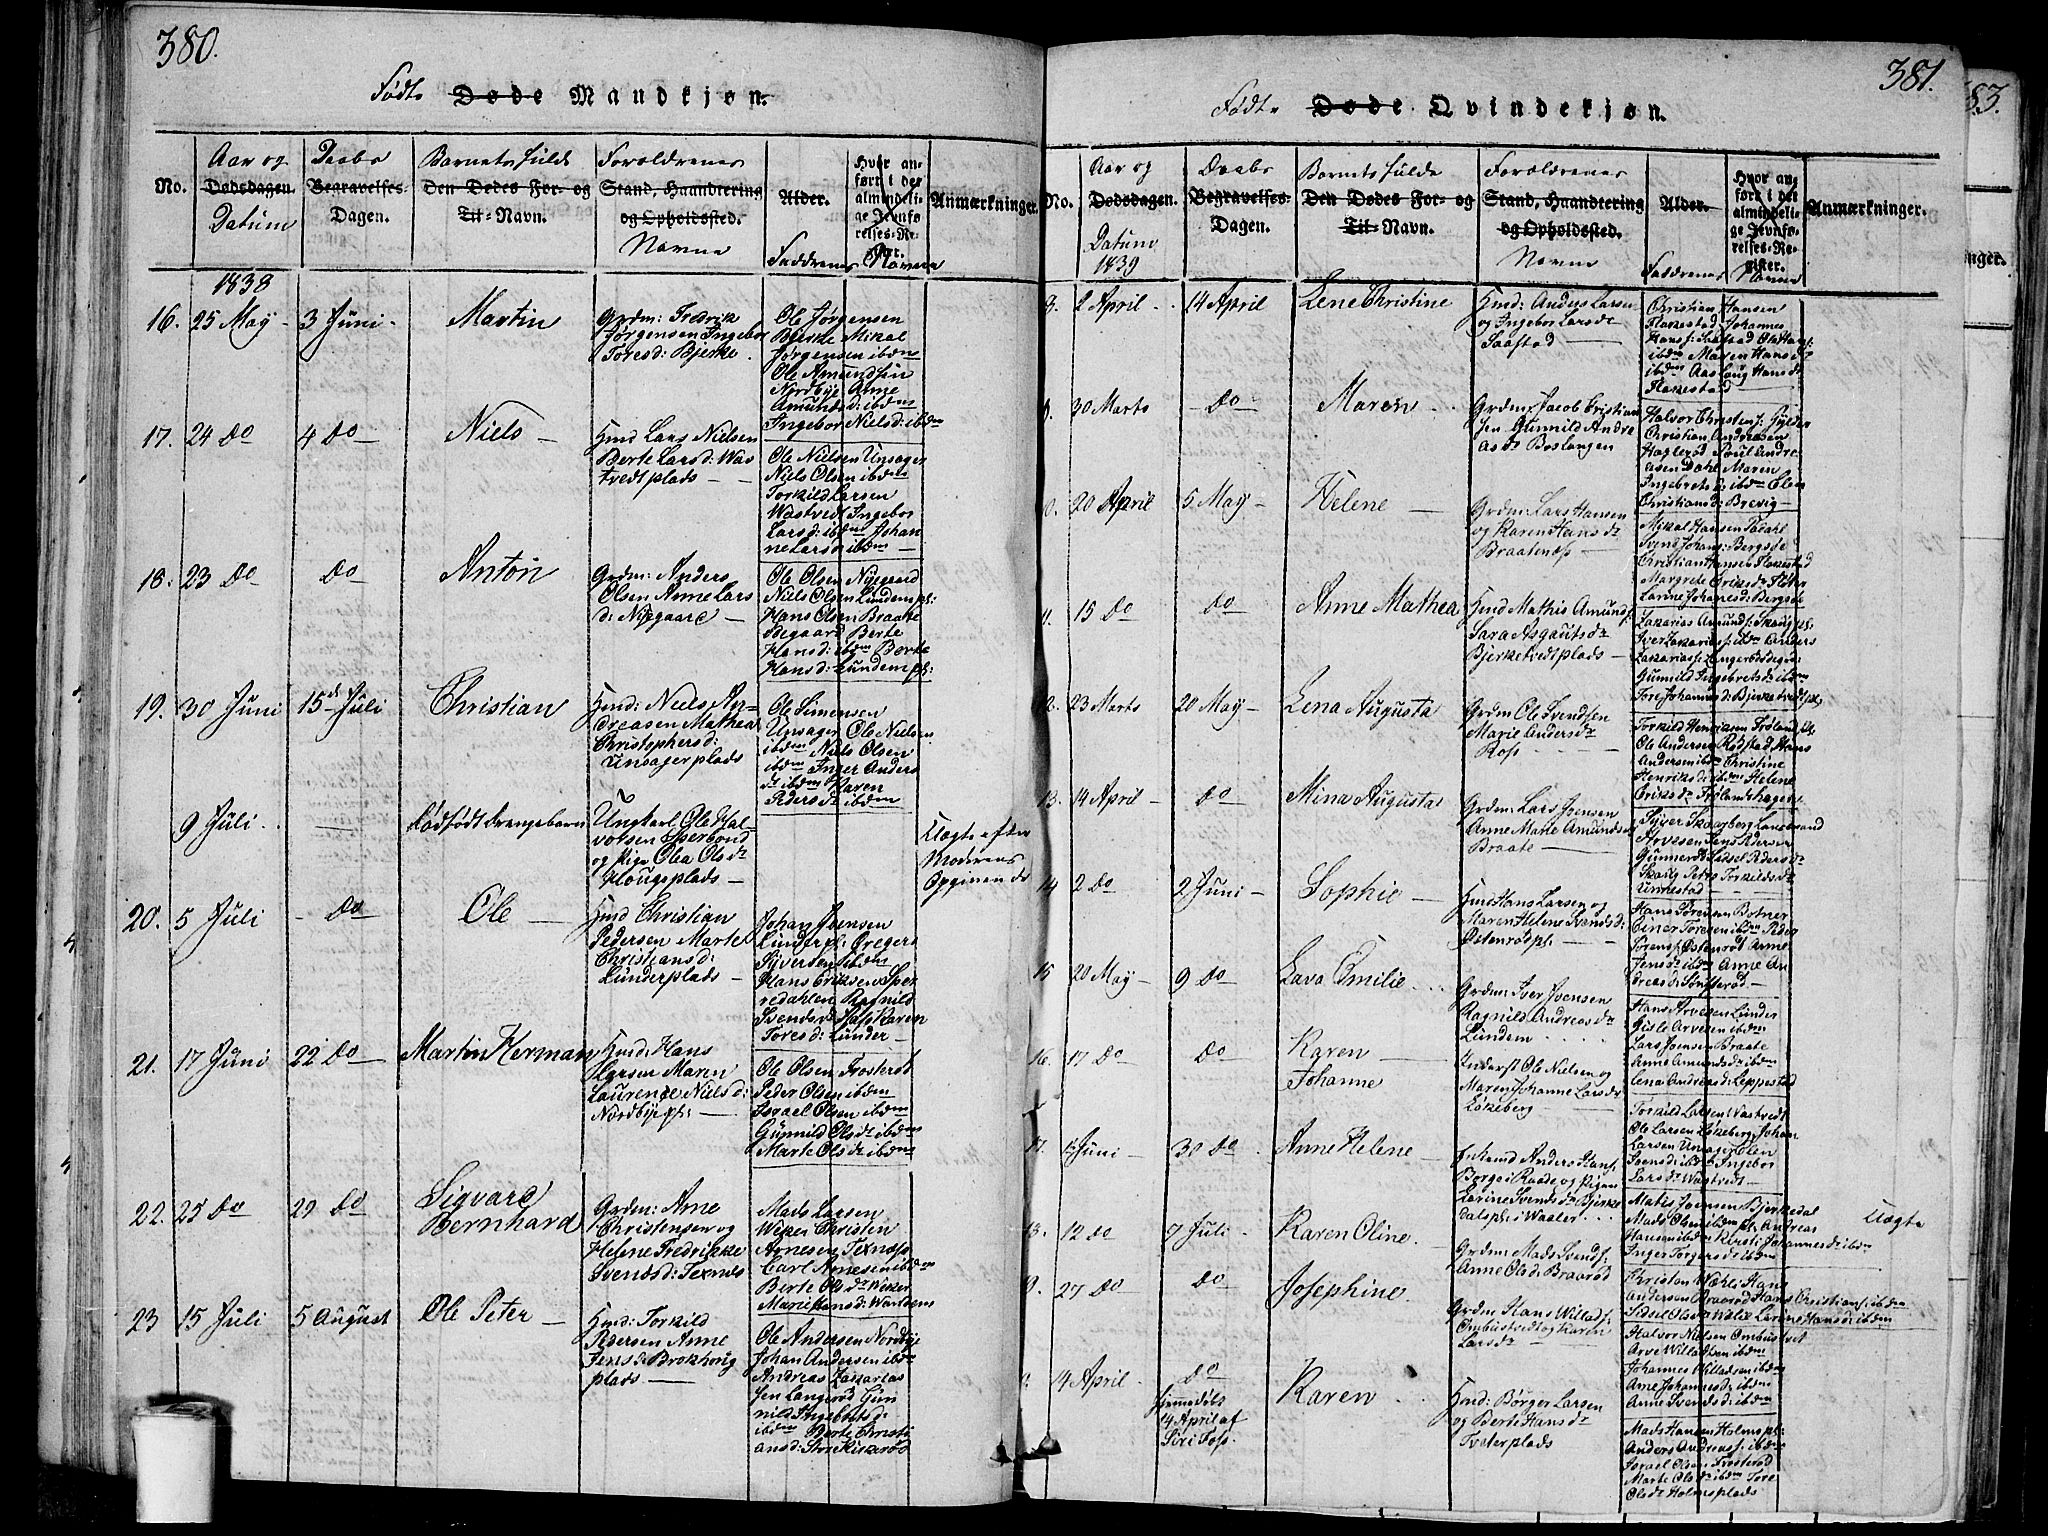 380.
Födte Døde Mandkjøn.
No.
Aar og
Dødsdagen.
Datum
Daabs
Begravelses-
Dagen.
Barnets fulde
Den Dødes For- og
Til-Navn.
Forældrenes
Stand, Haandtering
og Opholdssted.
Navne
Alder.
Faddrenes Navne
Hvor an-
ført i det
almindeli-
ge Jevnfø-
relses-Re-
gister.
Anmærkninger.
1838
16. 25 May 3 Juni Martin
Grdm: Fredrik
Jørgensen Ingebor
Toresd: Bjerke
Ole Jørgensen
Bjerke Mikal
Jørgensen ibdm
Ole Amundsen
Nordbye Anne
Amundsd: ibdm
Ingebor Nielsd: ibdm
17. 24 do 4 do Niels
Hmd Lars Nielsen
Berte Larsd: Was
tvedt plads
Ole Nielsen Unsager
Niels Olsen ibdm
Torkild Larsen
Wastvedt Ingebor
Larsd: ibdm Johan
ne Larsd: ibdm
18. 23 do do Anton
Grdm: Anders
Olsen Anne Lars
d: Nygaard
Ole Olsen Nygaard
Niels Olsen Lundem pl:
Hans Olsen Braate
Begaard Berte
Hansd: ibdm Berte
Hansd: Lundem pl:
19. 30 Juni 15de Juli Christian
Hmd: Niels An
dreasen Mathea
Christophersd:
Unsager plads
Ole Simensen
Unsager Ole Nielsen
ibdm Niels Olsen
ibdm Inger Anders
dr ibdm Karen
Pedersdr ibdm
9 Juli dødfødt drengebarn
Ungkarl Ole Hal-
vorsen Sperbond
og Pige Olea Olsdr
Hougsplads
Uægte efter
Moderens
Opgivende
20. 5 Juli do Ole
Hmd Christian
Pedersen Marte
Christiansd:
Lunderplads
Johan Jvensen
Lunderpl: Gregers
Syversen ibdm
Hans Eriksen Sper
redahlen Ragnild
Svendsd: Hass Karen
Toresd: Lunder
21. 17 Juni 22 do Martin Herman
Hmd: Hans
Hansen Maren
Laurence Nielsd:
Nordbye pl:
Ole Olsen Frosterød
Peder Olsen ibdm
Israel Olsen ibdm
Gunnild Olsdr ibdm
Marte Olsdr ibdm
22. 25 do 29 do Sigvard
Bernhard
Grdm: Arne
Christensen og
Helene Fredrikke
Svendsd: Texnæs
Mads Larsen
Wiker Christen
Arnesen Texnæss
Carl Arnesen ibdm
Berte Olsdr Wiker
Marie Hansd: Warldens
23 15 Juli 5 August Ole Peter
Hmd: Torkild
Pedersen Anne
Jensdr Brokhoug
plads
Ole Andersen Nordbye
Johan Andersen ibdm
Andreas Zakarias
sen Langrød Gun
nild Ingebretsd:
ibdm Berte Christi
ansd: Skrikkerød
381.
Födte Døde Qvindekjøn.
No.
Aar og
Dødsdagen.
Datum
1839
Daabs
Begravelses-
Dagen.
Barnets fulde
Den Dødes For- og
Til-Navn.
Forældrenes
Stand, Haandtering
og Opholdssted.
Navne
Alder.
Faddrenes Navne
Hvor an-
ført i det
almindeli-
ge Jevnfø-
relses-Re-
gister.
Anmærkninger.
2 April 14 April Lene Christine
Hmd: Anders Larsen
og Ingebor Larsdr
Saastad
Christian Hansen
Flakestad Johannes
Hans f: Saastad Ole Hans f:
ibdm Maren Hansdr
ibdm Aaslaug Hansdr
Flakestad
30 Marts do Maren
Grdm: Jacob Cristian
sen Gunnild Andre
asdr Boslangen
Halvor Christens f: Gylder
Christian Andreasen
Haglerød Poul Andre
asen Dahl Maren
Ingebretsd: ibdm Elen
Christiansd: Brevig
20 April 5 May Helene
Grdm: Lars Hansen
og Karen Hansdr
Braatenæs
Mikal Hansen
Svend Johans: Bergsde
Christian Hansen Flakestad
Margrete Eriksdr
Larine Johanesd: Bergsde
15 do do Anne Mathea
Hmd Mathis Amunds f:
Sara Asgautsdr
Bjerketvedtplads
Zakarias Amunds f: Skaug pl:
Iver Zakarias f: ibdm Anders
Zakarias f:
Gunnild Ingebretsdr ibdm
Tore Johannesd: Bjerketvedt pl:
12. 23 Marts 20 May Lena Augusta
Grdm Ole Svendsen
Marie Andersdr
Ross
Torkild Henriksen Frøland
Ole Andersen Rødstad Hans
Andersen ibdm Christine
Henriksd: ibdm Helene
Eriksdr Frøland
13. 14 April do Mina Augusta
Grdm: Lars Jvensen
Anne Marie Amundsdr
Braate
Syver Skougberg
Arvesen Jens Pedersen
Gunnerød Sidsel Pedersdr
Skoug Petre Torkildsdr
Unnestad
14 2 do 2 Juni Sophie
Hmd Hans Larsen og
Maren Helene Svendsd:
Østenrødpl:
Hans Toresen Botner
Einer Toresen ibdm Peder
Sørens f: Østenrød Anne
Jensdr ibdm Anne An
dreasdr
15 20 May 9 do Lava Emilie
Grdm: Iver Jvensen
Ragnild Andreasdr
Lundem
Hans Arvesen Lunder
Gisle Arvesen ibdm
Lars Jvensen Braate
Anne Amundsdr ibdm
Lena Andreasd: Leppestad
16. 17 do do Karen
Johanne
Inderst Ole Nielsen og
Maren Johanne Larsdr
Løkeberg
Torkild Larsen Wastvedt
Ole Larsen Løkeberg Johan
Larsen Unsager Elen
Svensd: ibdm Ingebor
Larsdr Wastvedt
17. Juni 30 do Anne Helene
Enkemd Anders Hans f:
Borge i Raade og Pigen
Larine Svendsdr Bjerke
dalspl: i Waaler
Mates Jvensen Bjerkedal
Mads Olsen ibdm pl: Andreas
Hansen ibdm Kersti Johannesdr ibdm
Inger Torgersdr ibdm
Uægte
18. 12 do 7 Juli Karen Oline
Grdm: Mads Svends f:
Anne Olsd: Braarød
Christian Wæhli Hans
Andersen Braarød Hans Christians f: ibdm
Sidsel Olsdr Wælie Larine Hansd: ibdm
27 do do Josephine
Grdm Hans Willads f:
Ombustvedt og Karen
Larsdr
Halvor Nielsen Ombustvet
Arve Willadsen ibdm
Johannes Willadsen ibdm
Anne Johannesd: ibdm
Anne Svendsd: ibdm
14 April do
hjemmedøbt
14 April af
Siri Foss.
Karen
Hmd: Børger Larsen
og Berte Hansdr
Tveterplads
Mads Hansen Holmspl:
Anders Andreas f: ibdm
Israel Olsen Frosterød
Marte Olsdr ibdm Tore
Olsdr Holmsplads
83.
nger.